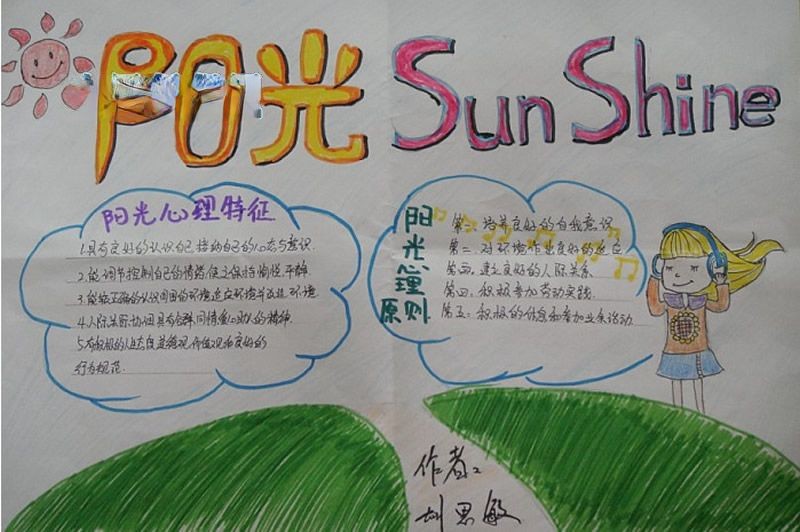 阳光 Sun Shine
阳光心理特征
1.具有良好的认识自己接纳自己的心态与意识.
2.能调节控制自己的情绪使之保持愉悦.平静.
3.能较正确的认识周围的环境适应环境并改造环境.
4.人际关系协调具有合群.同情爱心助人的精神.
5.有积极的人生态度道德观.价值观和良好的
行为规范.
阳光心理原则
第一:培养良好的自我意识
第二:对环境作出良好的适应
第三:建立良好的人际关系
第四:积极参加劳动实践.
第五:积极的休息和参加业余活动
作者:
刘思敏